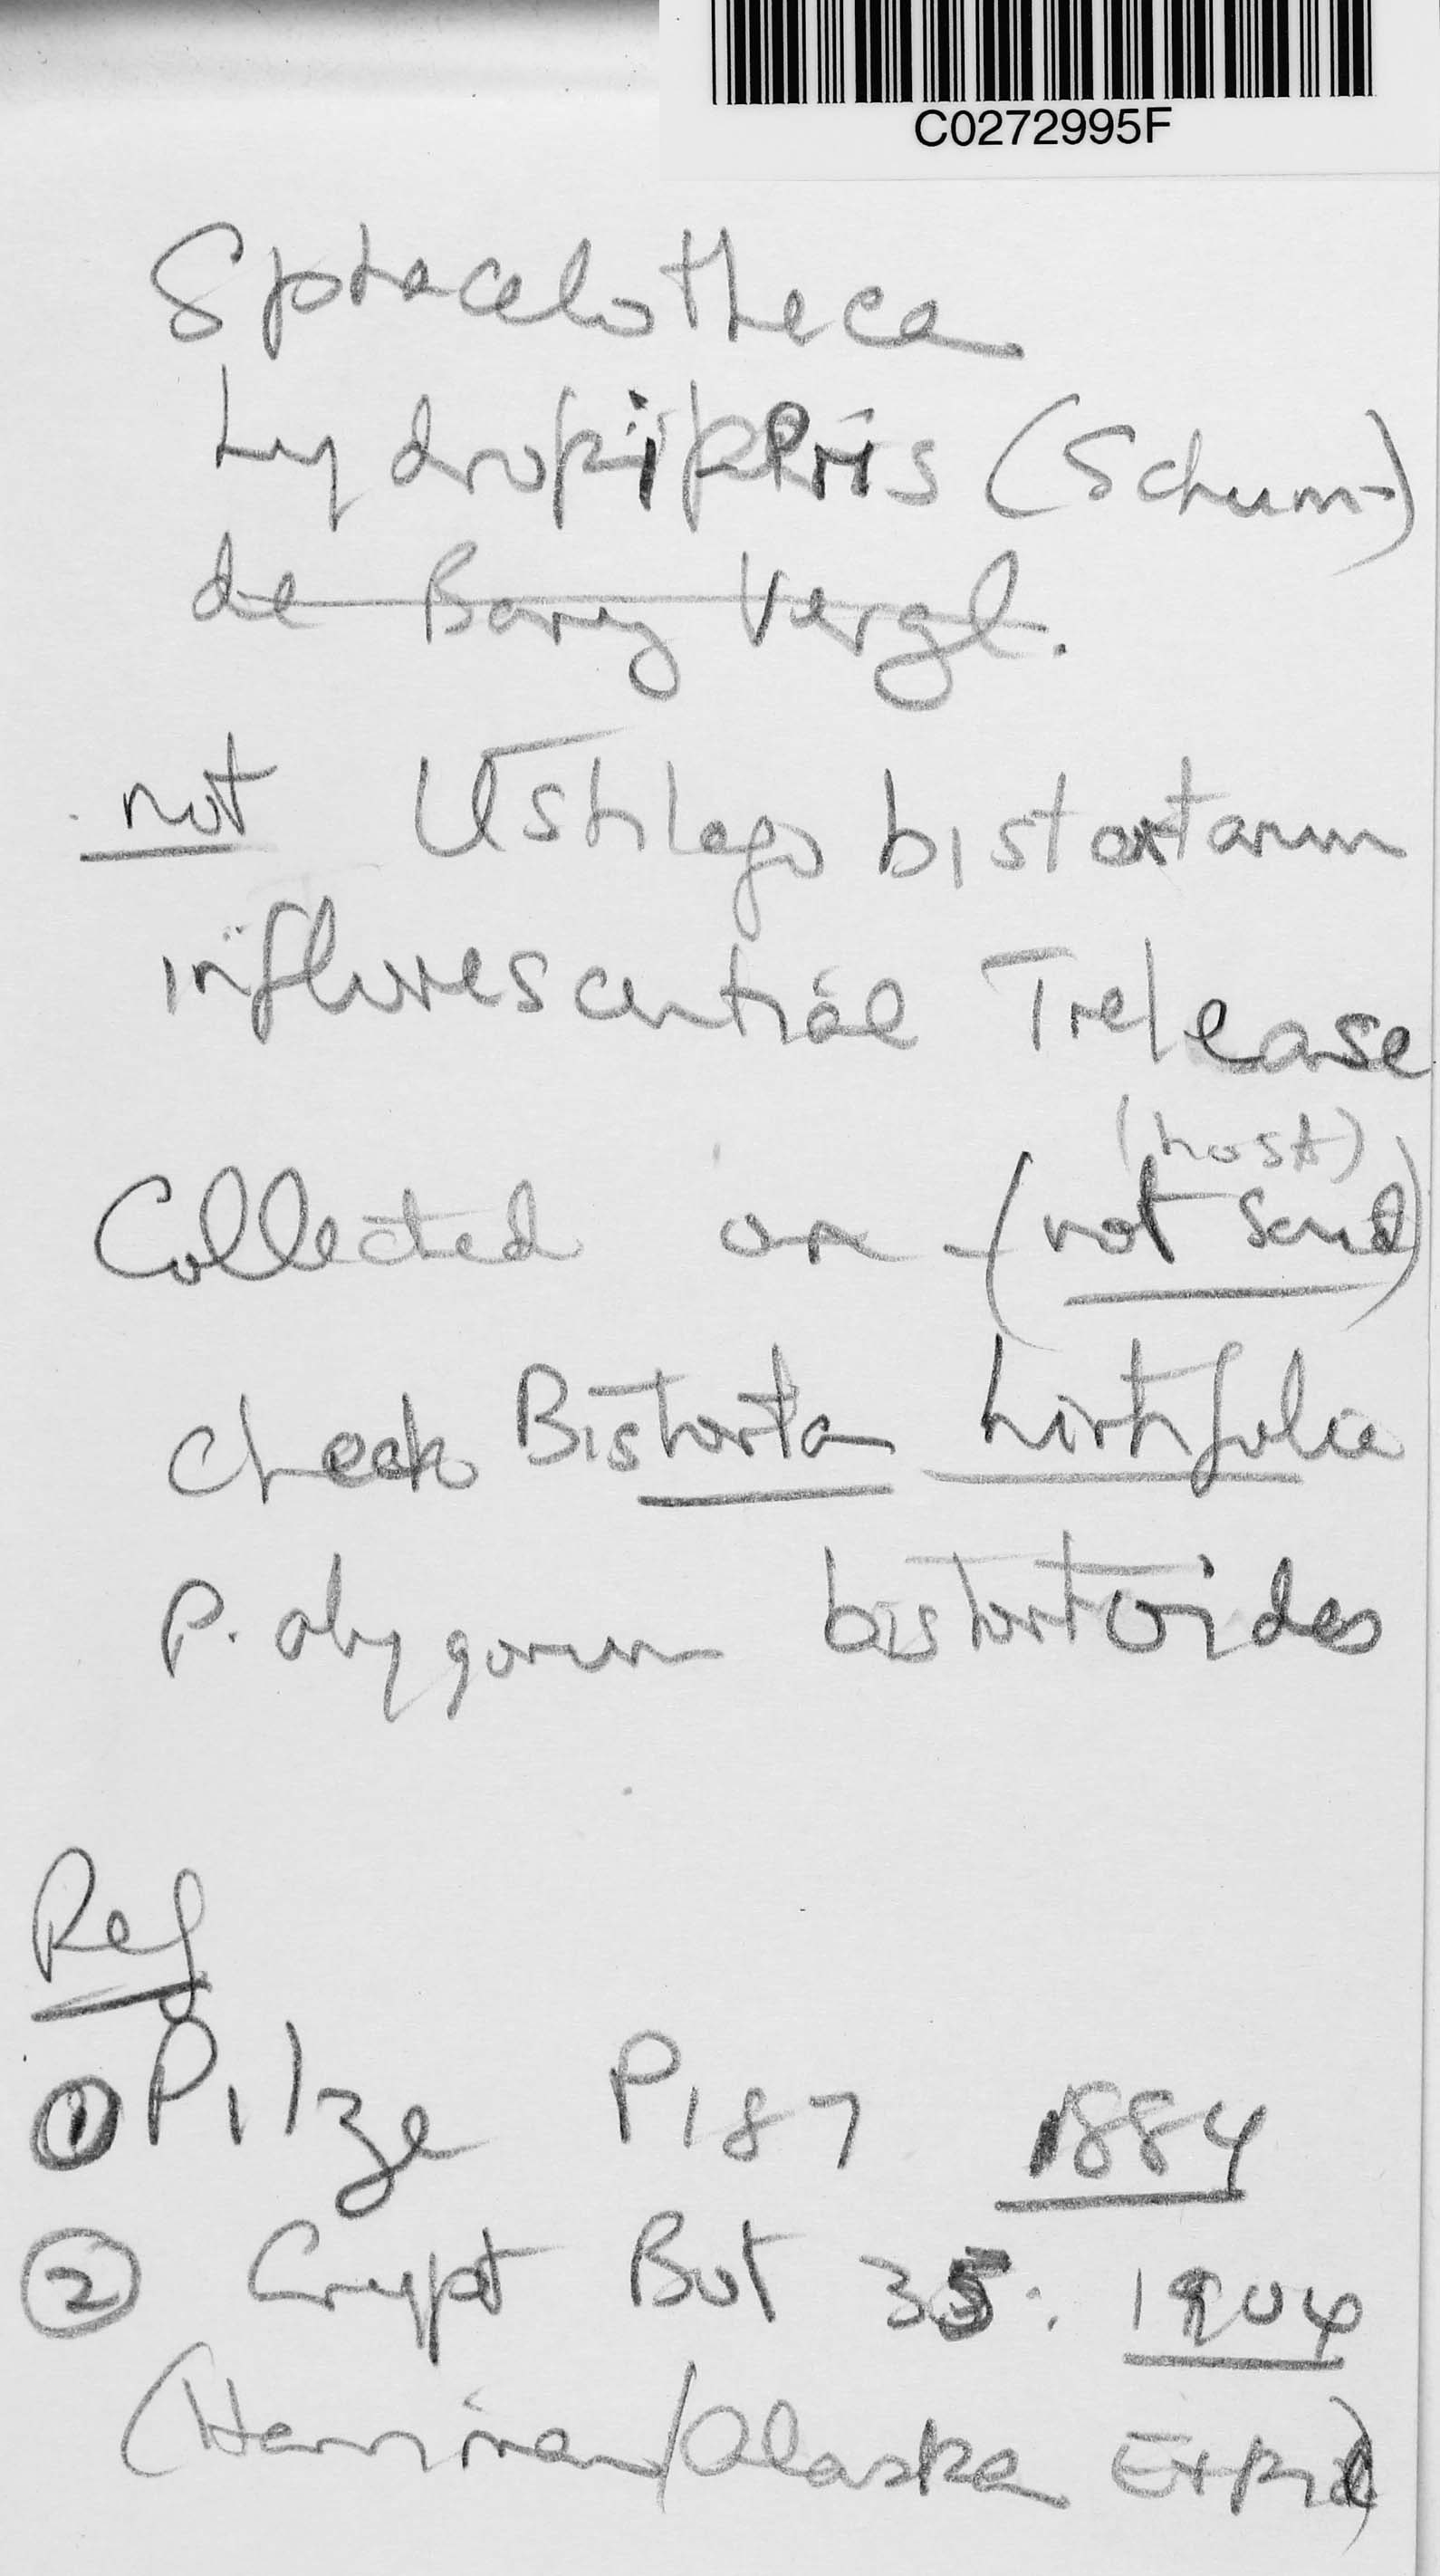 C0272995F
Sphacelotheca
hydropiperis (Schum.)
de Bary Vergl.
not Ustilago bistortarum
inflorescentiae Trelease
(host)
Collected on - (not Send)
check Bistorta hirtifolia
P. olygonum bistortoides
Ref
① Pilze P187 1884
② Crypt Bot 35: 1904
(Harriman/Alaska Exped)